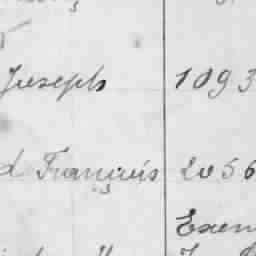 Joseph 1093
d François 2056
Exem